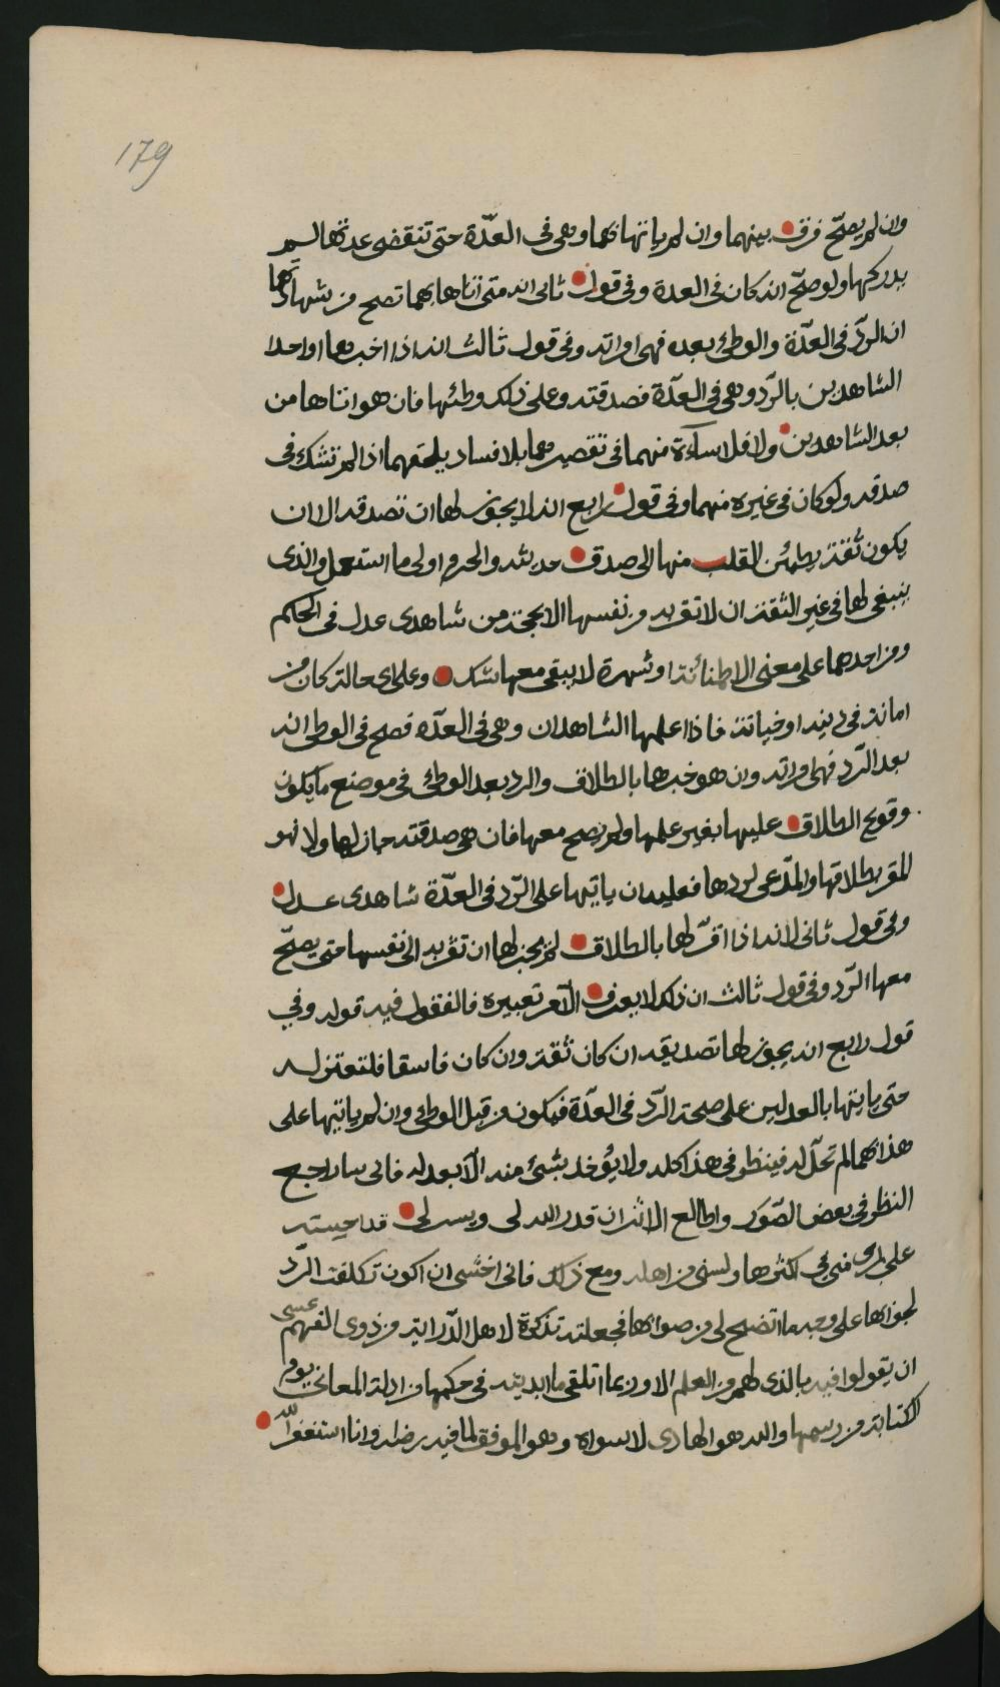 179
وان لم يصحّ فرق بينهما وان لم ياتها بهما وهي في العدّة حتى تنقضي عدتها لم
يدركها ولو صحّ انه كان في العدة وفي قول ثاني انه متى أتاها بهما تصح من شهادتهما
ان الردّ في العدّة والوطئ بعده فهي امراته وفي قول ثالث انه اذا اخبرهما او احدا
الشاهدين بالرّد وهي في العدّة فصدقته وعلى ذلك وطئها فان هو اتاها من
بعد الشاهدين ولا فلاساءة منهما في تقصيرهما بلا فساد يلحقهما اذا لم تشك في
صدقه ولو كان في غيره منهما وفي قول رابع انه لا يجوز لها ان تصدقه الا ان
يكون ثقة يطمئن القلب منها الى صدق حديثه والحزم اولى ما استعمل والذي
ينبغي لها في غير الثقة ان لا تقربه من نفسها الا بحجة من شاهدى عدل في الحكم
ومن احدهما على معنى الاطمئانة او شهرة لا يبقى معها شك وعلى اى حالة كان من
امانة في دينه او خيانة فاذا اعلمها الشاهدان وهي في العدّه فصح في الوطي انه
بعد الرّد فهي امراته وان هو خبرها بالطلاق والرد بعد الوطئ في موضع ما يكون
وقوع الطلاق عليها بغير علمها ولم يصح معها فان هي صدقته جاز لها ولا فهو
المقر بطلاقها والمدّعى لردها فعليه ان ياتيها على الرّد في العدّة شاهدى عدل
وفي قول ثاني لا انه اذا اقرّ لها بالطلاق لم يجز لها ان تقربه الى نفسها حتى يصحّ
معها الرّد وفي قول ثالث ان ذلك لا يعرف الا عن تعبيره فالقول فيه قوله وفي
قول رابع انه يجوز لها تصديقه ان كان ثقة وان كان فاسقا فلتعتزله
حتى ياتيها بالعدلين على صحة الرّد في العدّة فيكون من قبل الوطي وان لم ياتيها على
هذا بهما لم تحلّ له فينظر في هذا كله ولا يؤخذ بشئ منه الّا بعدله فاني ساراجع
النظر في بعض الصّور واطالع الاثر ان قدر الله لي ويسر لي
على من في اكثرها ولسنى من اهله ومع ذلك فاني اخشى ان اكون تكلفت الرّد
لجوابها على وجه ما اتضح لي من صوابها فجعلته تذكرة لاهل الدّراية من ذوى الفهم عسى
ان يقولوا فيه بالذى لهم من العلم الا وربما اتلقى ما ابديته في حكمها من ادلة المعاني يوم
الكتابة من رسمها والله هو الهادى لا سواه وهو الموفق لما فيه رضاه وانا استغفر الله